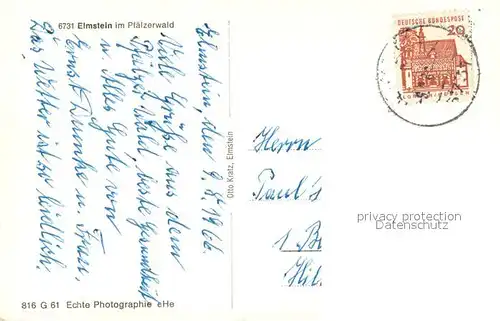 6731 Elmstein im Pfälzerwald
Elmstein, den 9.5.1966.
Viele Grüße aus dem
Pfälzer Wald, beste Gesundheit
u. Alles Gute von
Ernst u. Frau.
Das Wetter ist so
816 G 61 Echte Photographie eHe
Otto Kratz, Elmstein
DEUTSCHE BUNDESPOST
20
Herrn
Paul
privacy protection
Datenschutz